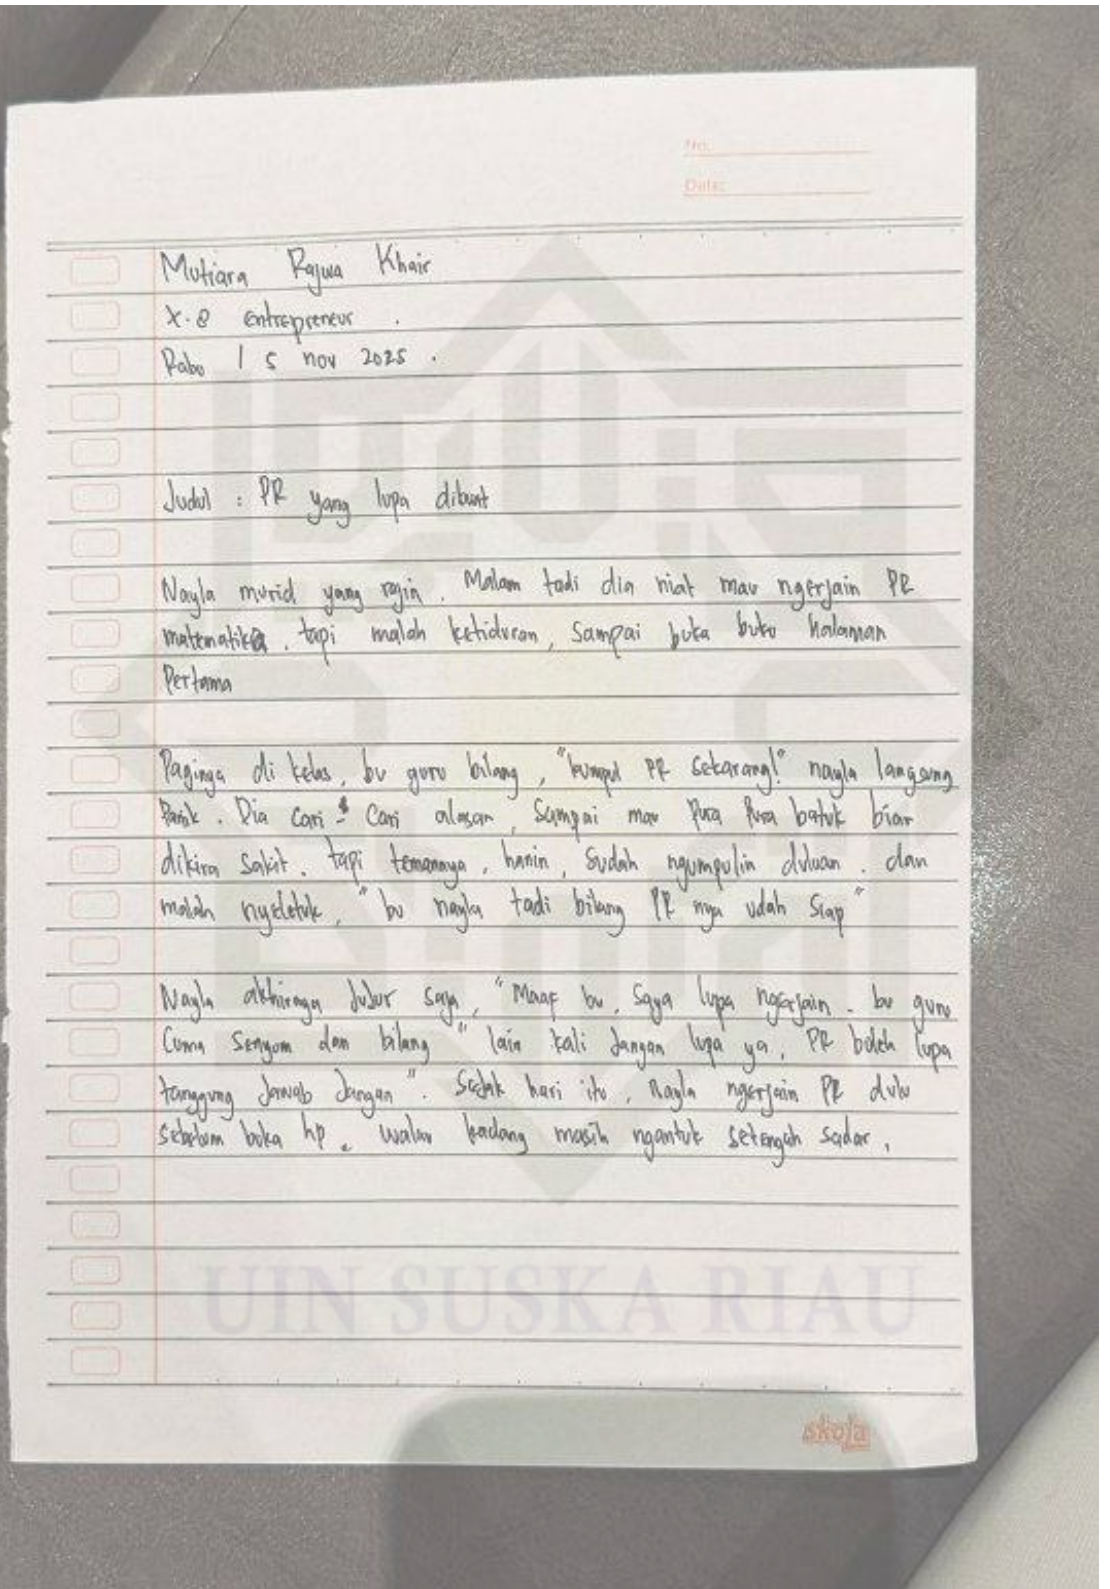 No:
Date:
Mutiara Rajwa Khair
X.8 entrepreneur.
Rabu / 5 nov 2025.
Judul : PR yang lupa dibuat
Nayla murid yang rajin. Malam tadi dia niat mau ngerjain PR
matematika. tapi malah ketiduran, Sampai buka buku halaman
Pertama
Paginya di kelas, bu guru bilang, "kumpul PR sekarang!" nayla langsung
Panik. Dia Cari - Cari alasan, Sampai mau Pura Pura batuk biar
dikira sakit. tapi temannya, hanin, Sudah ngumpulin duluan. dan
malah nyeletuk, "bu nayla tadi bilang PR nya udah Siap"
Nayla akhirnya Jujur saja, "Maaf bu, Saya lupa ngerjain. bu guru
Cuma Senyum dan bilang "lain kali Jangan lupa ya, PR boleh lupa
tanggung Jawab Jangan". Sejak hari itu, Nayla ngerjain PR dulu
Sebelum buka hp. walau kadang masih ngantuk setengah sadar.
UIN SUSKA RIAU
skola